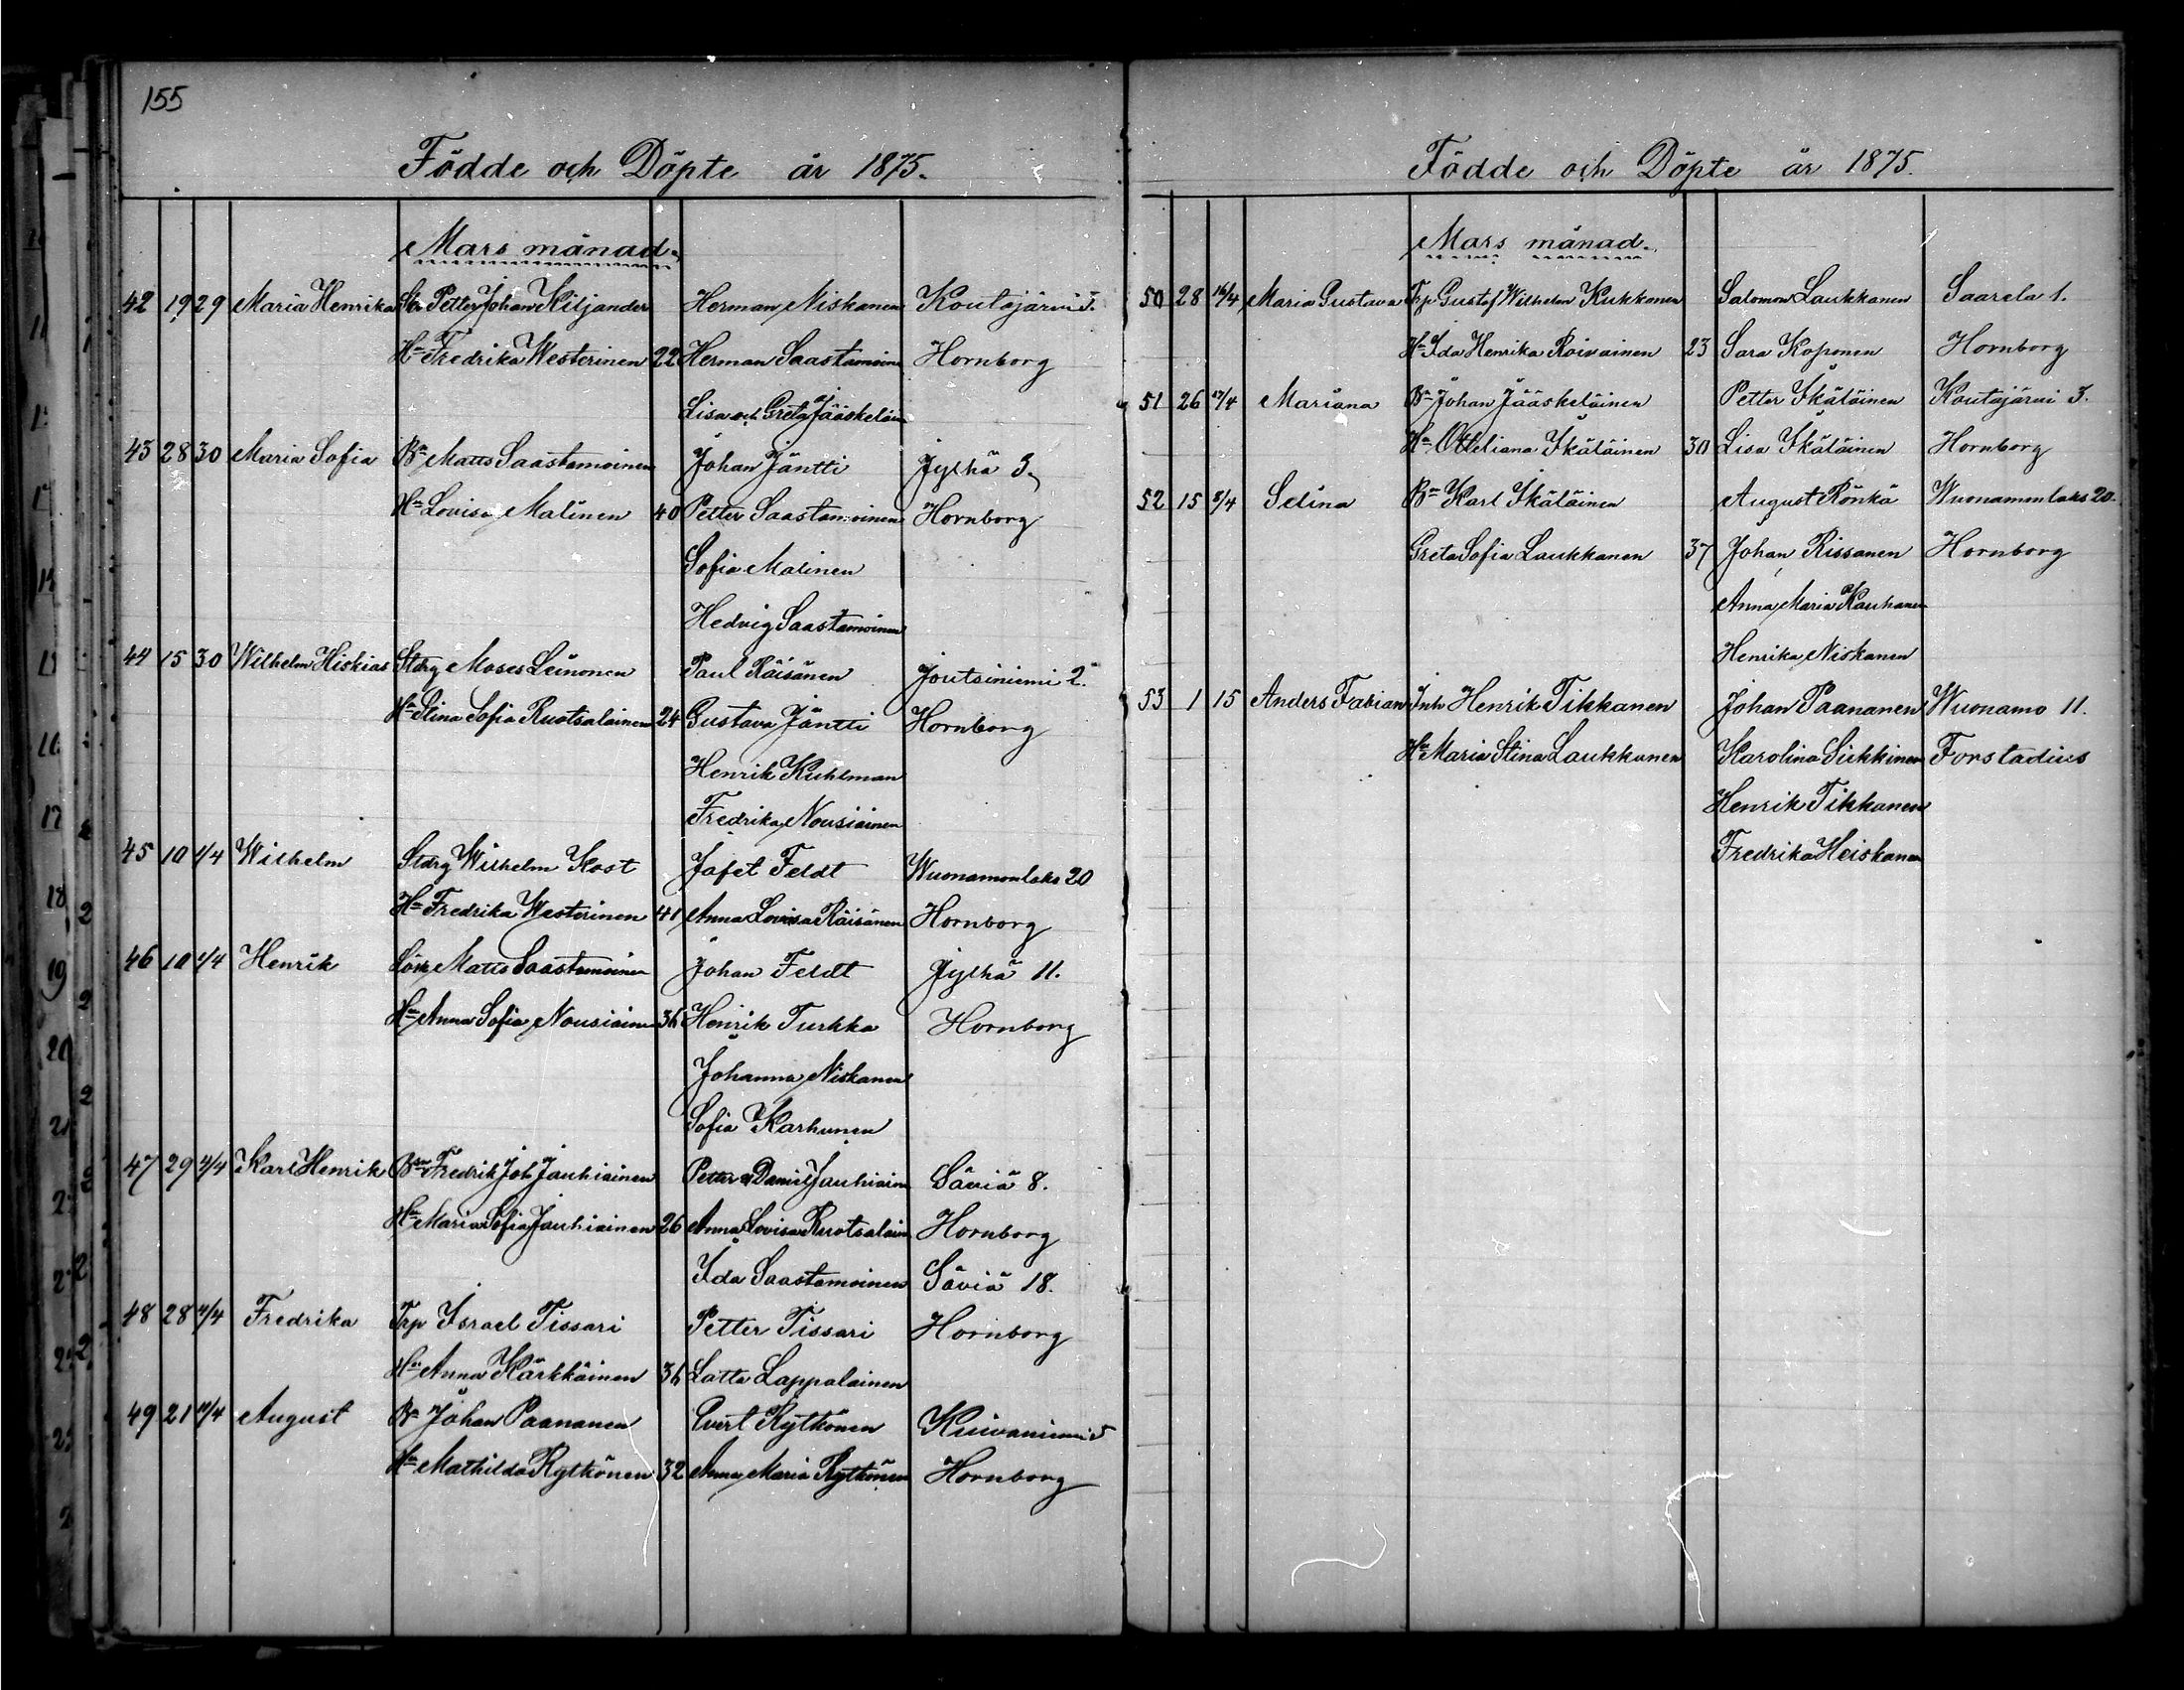 155
Födde och Döpte år 1875.
Mars månad.
42 19 29 Maria Henrika Petter Johan Kiljander Herman Niskanen Koutajärvi 5.
Hn Fredrika Westerinen 22 Herman Saastamoinen Hornborg
Lisa och Greta Jääskeläin
43 28 30 Maria Sofia Bn Matts Saastamoinen Johan Jäntti Jylhä 3.
Hn Lovisa Malinen 40 Petter Saastamoinen Hornborg
Sofia Malinen
Hedvig Saastamoinen
44 15 30 Wilhelm Hiskias Stdrg Moses Leinonen Paul Räisänen Joutsiniemi 2.
Hn Stina Sofia Ruotsalainen 24 Gustava Jäntti Hornborg
Henrik Kuhlman
Fredrika Nousiainen
45 10 1/4 Wilhelm Stdrg Wilhelm Kost Jafet Feldt Wuonamonlaks 20
Hn Fredrika Westerinen 41 Anna Lovisa Räisänen Hornborg
46 10 4/4 Henrik Matts Saastamoinen Johan Feldt Jylhä 11.
Hn Anna Sofia Nousiainen 36 Henrik Turkka Hornborg
Johanna Niskanen
Sofia Karhunen
47 29 4/4 Karl Henrik Bn Fredrik Joh Jauhiainen Petter Daniel Jauhiainen Säviä 8.
Hn Maria Sofia Jauhiainen 26 Anna Lovisa Ruotsalain Hornborg
Ida Saastamoinen Säviä 18.
48 28 4/4 Fredrika Trp Israel Tissari Petter Tissari Hornborg
Hn Anna Kärkkäinen 36 Latta Lappalainen
49 21 11/4 August Bn Johan Paananen Evert Rytkönen Kuivaniemi 5
Hn Mathilda Rytkönen 32 Anna Maria Rytkönen Hornborg
Födde och Döpte år 1875.
Mars månad.
50 28 16/4 Maria Gustava Trp Gustaf Wilhelm Kukkonen Salomon Laukkanen Saarela 1.
Hn Ida Henrika Roivainen 23 Sara Koponen Hornborg
51 26 17/4 Mariana Bn Johan Jääskeläinen Petter Ikäläinen Koutajärvi 3.
Hn Otteliana Ikäläinen 30 Lisa Ikäläinen Hornborg
52 15 5/4 Selina Bn Karl Ikäläinen August Rönkä Wuonamonlaks 20.
Greta Sofia Laukkanen 37 Johan Rissanen Hornborg
Anna Maria Kauhanen
Henrika Niskanen
53 1 15 Anders Fabian Inh Henrik Tikkanen Johan Paananen Wuonamo 11.
Hn Maria Stina Laukkanen Karolina Sirkkinen Forstadius
Henrik Tikkanen
Fredrika Heiskanen